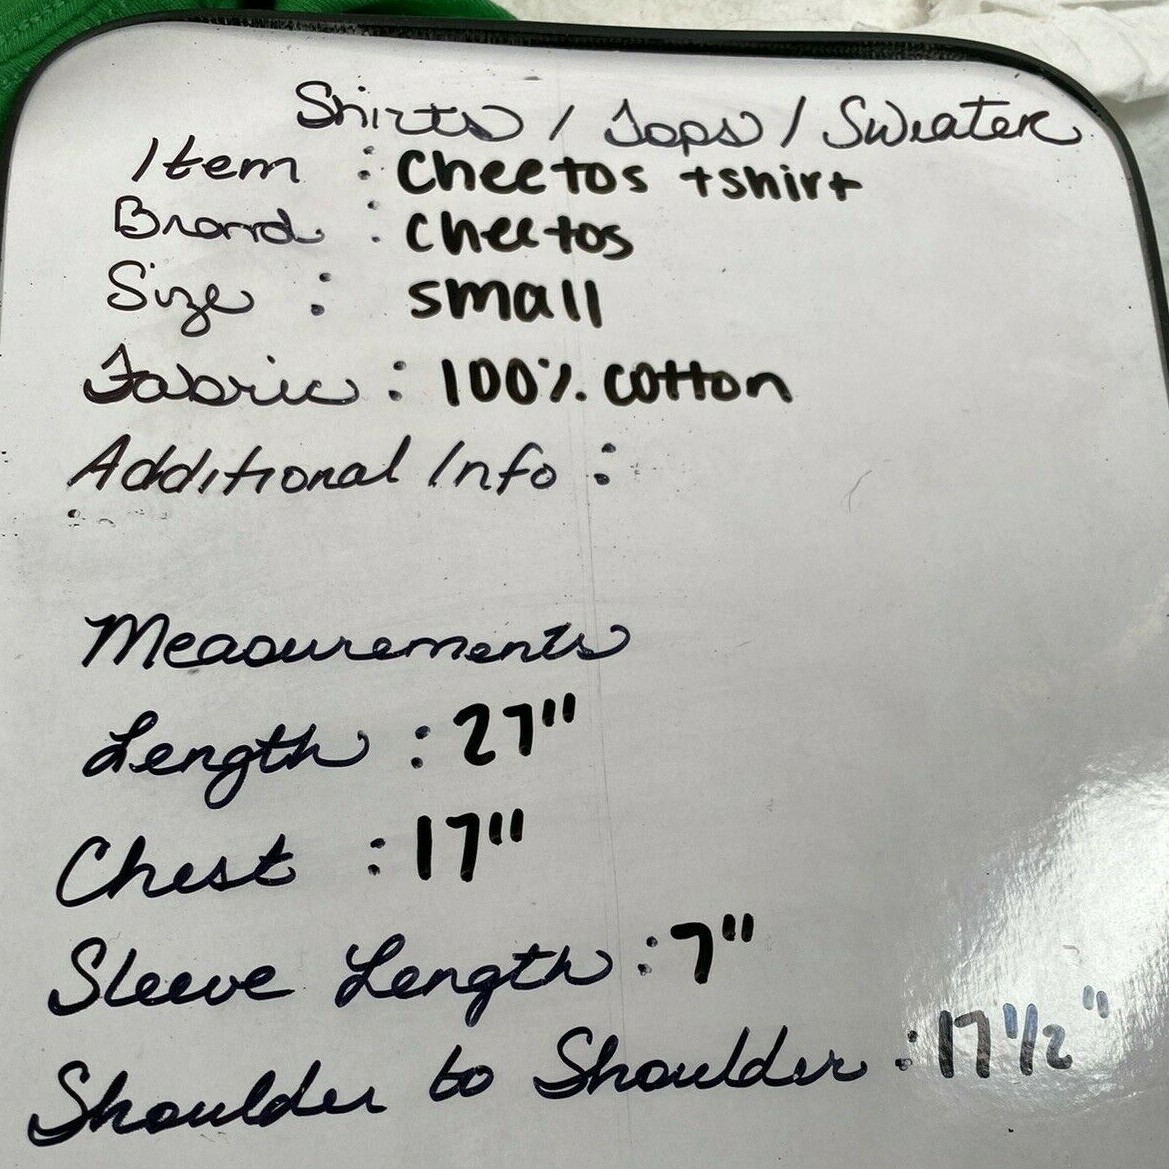 Shirts / Tops / Sweater
Item : Cheetos tshirt
Brand : Cheetos
Size : small
Fabric : 100% cotton
Additional Info :
Measurements
Length : 27"
Chest : 17"
Sleeve Length : 7"
Shoulder to Shoulder : 17 1/2"